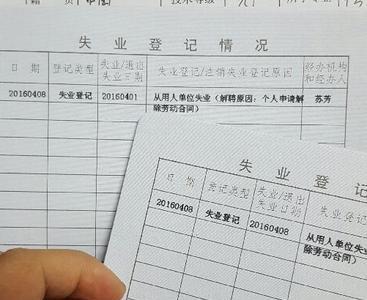 失业登记情况
日期 登记类型 失业/退出失业日期 失业登记/注销失业登记原因 经办机构和经办人
20160408 失业登记 20160401 从用人单位失业（解聘原因：个人申请解除劳动合同） 苏芳
失业登记
日期 登记类型 失业/退出失业日期 失业登记
20160408 失业登记 20160408 从用人单位失业
除劳动合同）